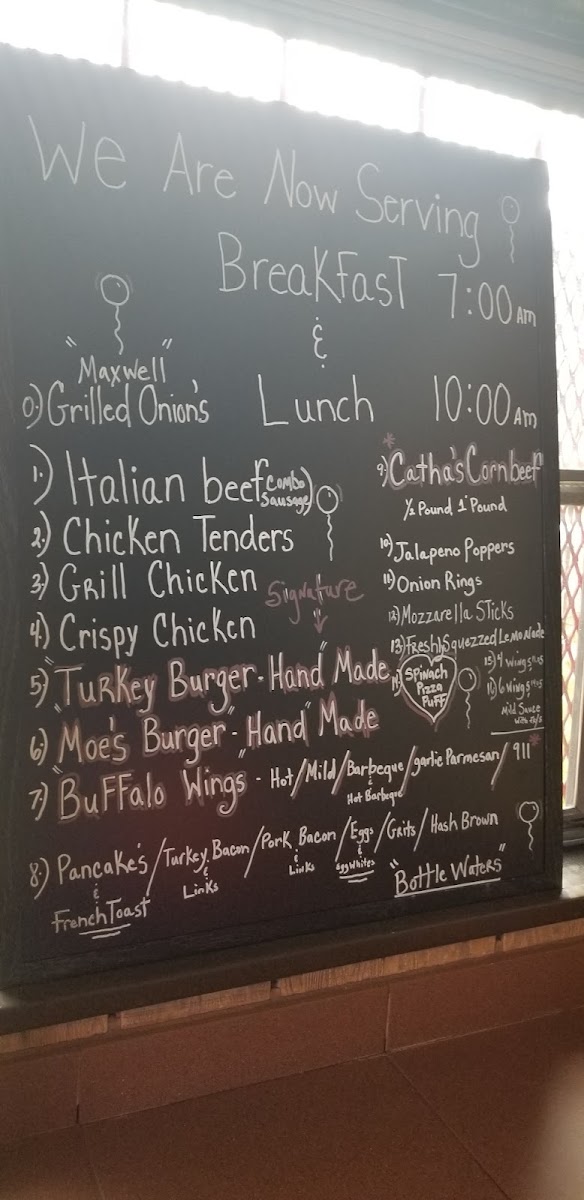 We Are Now Serving
Breakfast 7:00 Am
&
"Maxwell"
0.) Grilled Onion's
Lunch 10:00 Am
1.) Italian beef (Combo Sausage)
2.) Chicken Tenders
3.) Grill Chicken
4.) Crispy Chicken
Signature
5.) "Turkey Burger - Hand" Made
6.) Moe's Burger - "Hand" Made
7.) "Buffalo Wings" - Hot / Mild / Barbeque / garlic Parmesan / 911*
& Hot Barbeque
8.) Pancake's / Turkey Bacon / Pork Bacon / Eggs / Grits / Hash Brown
& French Toast
& Links
& Links
& Egg Whites
"Bottle Waters"
*
9.) Catha's Cornbeef
½ Pound 1 Pound
10.) Jalapeno Poppers
11.) Onion Rings
12.) Mozzarella Sticks
13.) Freshly Squezzed Lemonade
14.) Spinach
Pizza
Puff
15.) 4 wing
16.) 6 wing
Mild Sauce